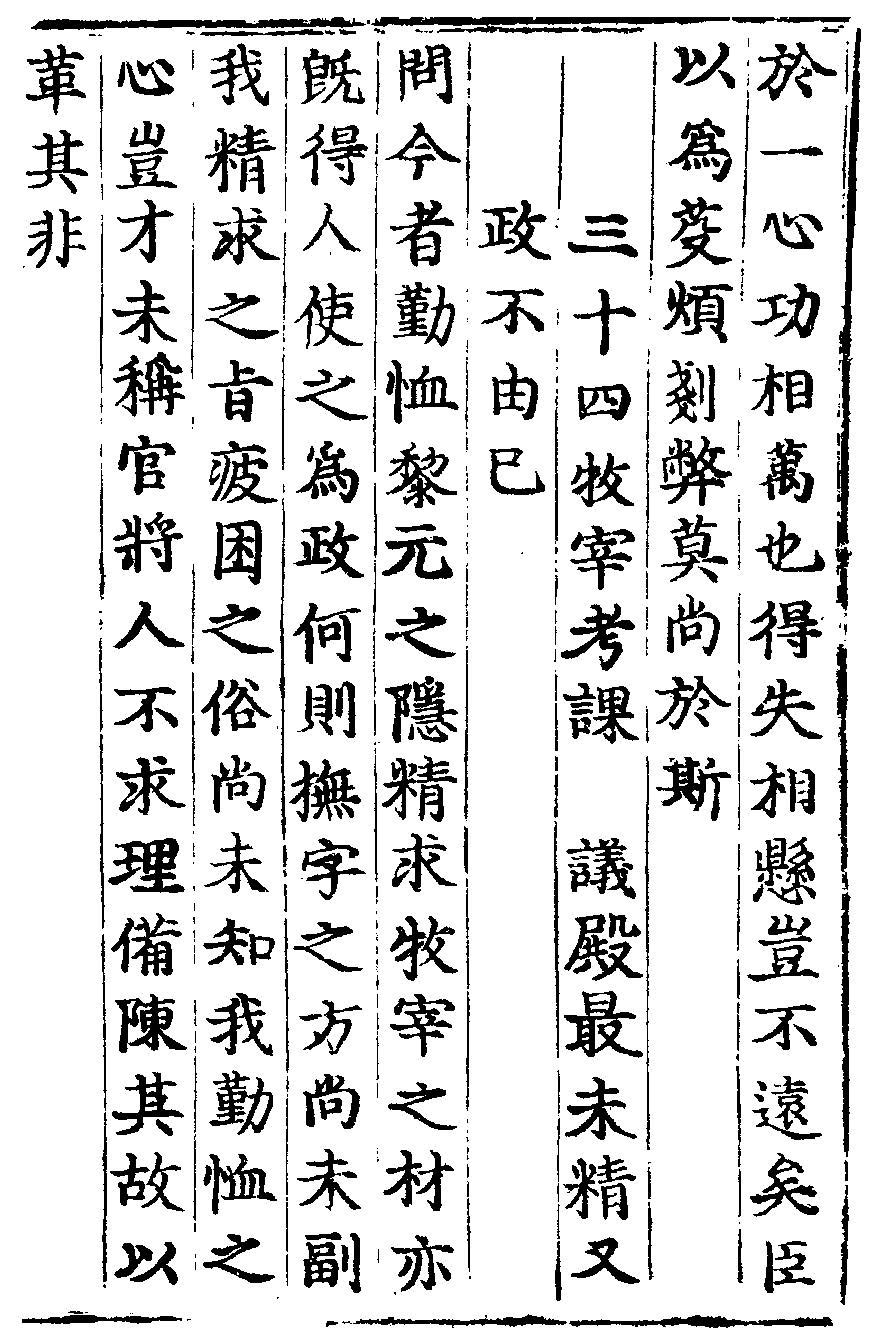 於一心功相萬也得失相懸豈不遠矣臣
以爲芟煩剗弊莫尚於斯
三十四牧宰考課 議殿最未精又
政不由已
問今者勤恤黎元之隱精求牧宰之材亦
旣得人使之爲政何則撫字之方尚未副
我精求之旨疲困之俗尚未知我勤恤之
心豈才未稱官將人不求理備陳其故以
革其非